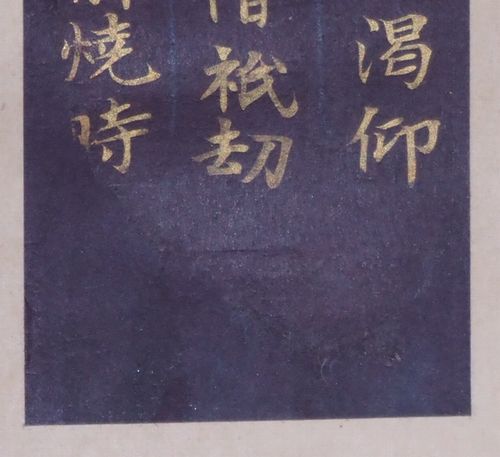 渴仰
祇劫
燒時